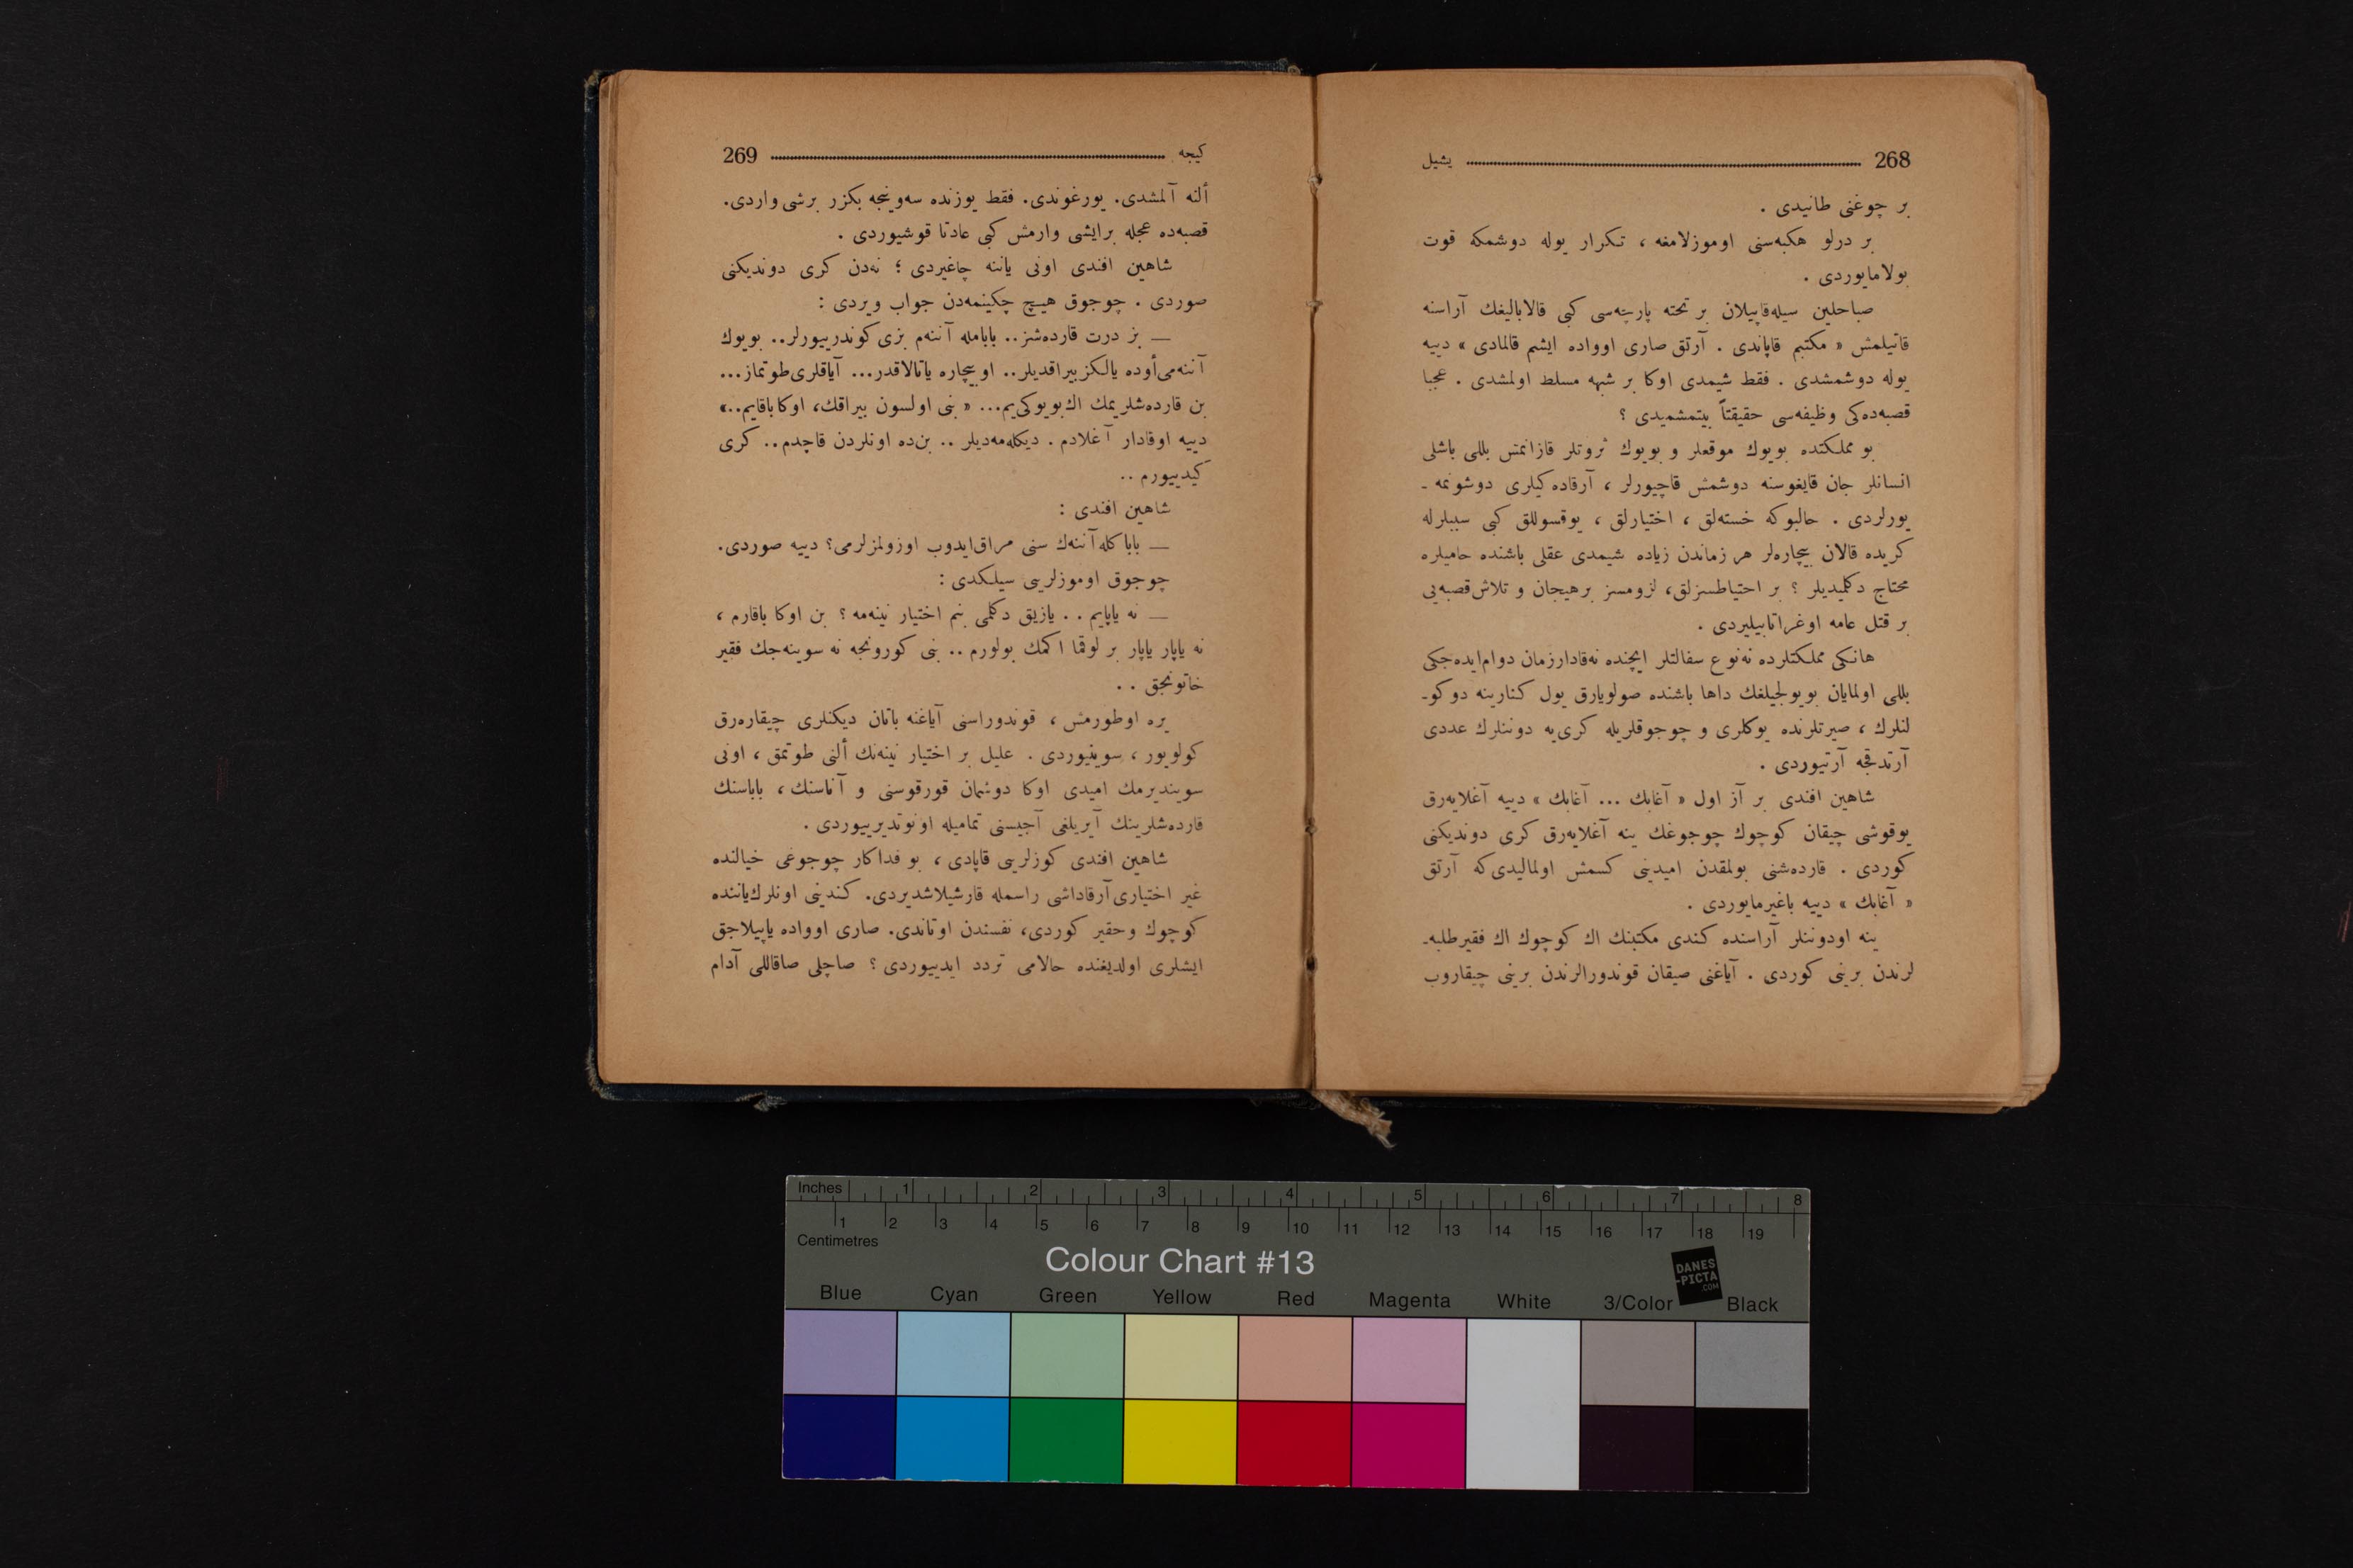 268 يشيل
بر چوغنى طانيدى .
بر درلو هكبه‌سنى اوموزلامغه ، تكرار يوله دوشمكه قوت
بولامايوردى .
صباحلين سيله‌قاپيلان بر تخته پارچه‌سى كبى قالاباليغك آراسنه
قاتيلمش « مكتبم قاپاندى . آرتق صارى اوواده ايشم قالمادى » دييه
يوله دوشمشدى . فقط شيمدى اوكا بر شبهه مسلط اولمشدى . عجبا
قصبه‌ده‌كى وظيفه‌سى حقيقتاً بيتمشميدى ؟
بو مملكتده بويوك موقعلر و بويوك ثروتلر قازانمش بللى باشلى
انسانلر جان قايغوسنه دوشمش قاچيورلر ، آرقاده‌كيلرى دوشونمه ـ
يورلردى . حالبوكه خسته‌لق ، اختيارلق ، يوقسوللق كبى سببلرله
كريده قالان بيچاره‌لر هر زماندن زياده شيمدى عقلى باشنده حاميلره
محتاج دكلميديلر ؟ بر احتياطسزلق، لزومسز برهيجان و تلاش قصبه‌يى
بر قتل عامه اوغراتابيليردى .
هانكى مملكتلرده نه‌نوع سفالتلر ايچنده نه‌قادارزمان دوام‌ايده‌جكى
بللى اولمايان بويولجيلغك داها باشنده صولويارق يول كنارينه دوكو‌ـ
لنلرك ، صيرتلرنده يوكلرى و چوجوقلريله كرى‌يه دوننلرك عددى
آرتدقجه آرتيوردى .
شاهين افندى بر آز اول « آغابك ... آغابك » دييه آغلايه‌رق
يوقوشى چيقان كوچوك چوجوغك ينه آغلايه‌رق كرى دونديكنى
كوردى . قارده‌شنى بولمقدن اميدينى كسمش اولماليدى‌كه آرتق
« آغابك » دييه باغيرمايوردى .
ينه اودوننلر آراسنده كندى مكتبنك اك كوچوك اك فقير طلبه‌ـ
لرندن برينى كوردى . آياغنى صيقان قوندورالرندن برينى چيقاروب
كيجه 269
ألنه آلمشدى. يورغوندى. فقط يوزنده سه‌وينجه بكزر برشى واردى.
قصبه‌ده عجله برايشى وارمش كبى عادتا قوشيوردى .
شاهين افندى اونى ياننه چاغيردى ؛ نه‌دن كرى دونديكنى
صوردى . چوجوق هيچ چكينمه‌دن جواب ويردى :
— بز درت قارده‌شز.. بابامله آننه‌م بزى كوندرييورلر.. بويوك
آننه‌مى‌أوده يالكز بيراقديلر.. او بيچاره ياتالاقدر... آياقلرى‌طوتماز...
بن قارده‌شلريمك اك‌بويوكى‌يم... « بنى اولسون بيراقك، اوكا باقايم..»
دييه اوقادار آغلادم . ديكله‌مه‌ديلر .. بن‌ده اونلردن قاچدم.. كرى
كيدييورم ..
شاهين افندى :
— باباكله‌آننه‌ك سنى مراق‌ايدوب اوزولمزلرمى؟ دييه صوردى.
چوجوق اوموزلرينى سيلكدى :
— نه ياپايم . . يازيق دكلمى بنم اختيار نينه‌مه ؟ بن اوكا باقارم ،
نه ياپار ياپار بر لوقما اكمك بولورم .. بنى كورونجه نه سوينه‌جك فقير
خاتونجق . .
يره اوطورمش ، قوندوراسنى آياغنه باتان ديكنلرى چيقاره‌رق
كولويور ، سوينيوردى . عليل بر اختيار نينه‌نك ألنى طوتمق ، اونى
سوينديرمك اميدى اوكا دوشمان قورقوسنى و آناسنك ، باباسنك
قارده‌شلرينك آيريلغى آجيسنى تماميله اونوتديرييوردى .
شاهين افندى كوزلرينى قاپادى ، بو فداكار چوجوغى خيالنده
غير اختيارى آرقاداشى راسمله قارشيلاشديردى. كندينى اونلرك‌ياننده
كوچوك وحقير كوردى، نفسندن اوتاندى. صارى اوواده ياپيلاجق
ايشلرى اولديغنده حالامى تردد ايدييوردى ؟ صاچلى صاقاللى آدام
Inches 1 2 3 4 5 6 7 8
1 2 3 4 5 6 7 8 9 10 11 12 13 14 15 16 17 18 19
Centimetres
Colour Chart #13
DANES
-PICTA
.COM
Blue Cyan Green Yellow Red Magenta White 3/Color Black